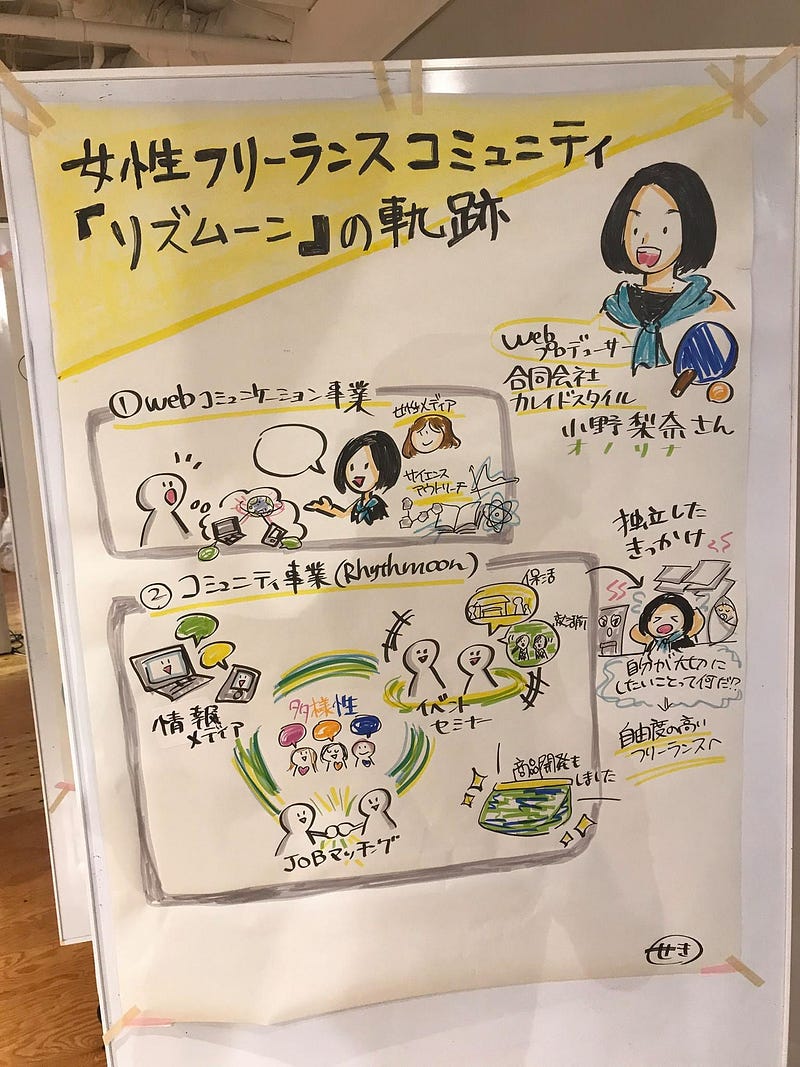 女性フリーランスコミュニティ
『リズムーン』の軌跡
web
プロデューサー
合同会社
カレイドスタイル
小野梨奈さん
オノリナ
①webコミュニケーション事業
女性メディア
サイエンス
アウトリーチ
独立した
きっかけ
自分が大切に
したいことって何だ!?
自由度の高い
フリーランスへ
②コミュニティ事業(Rhythmoon)
保活
情報
メディア
多様性
イベント
セミナー
JOBマッチング
商品開発も
しました
せき